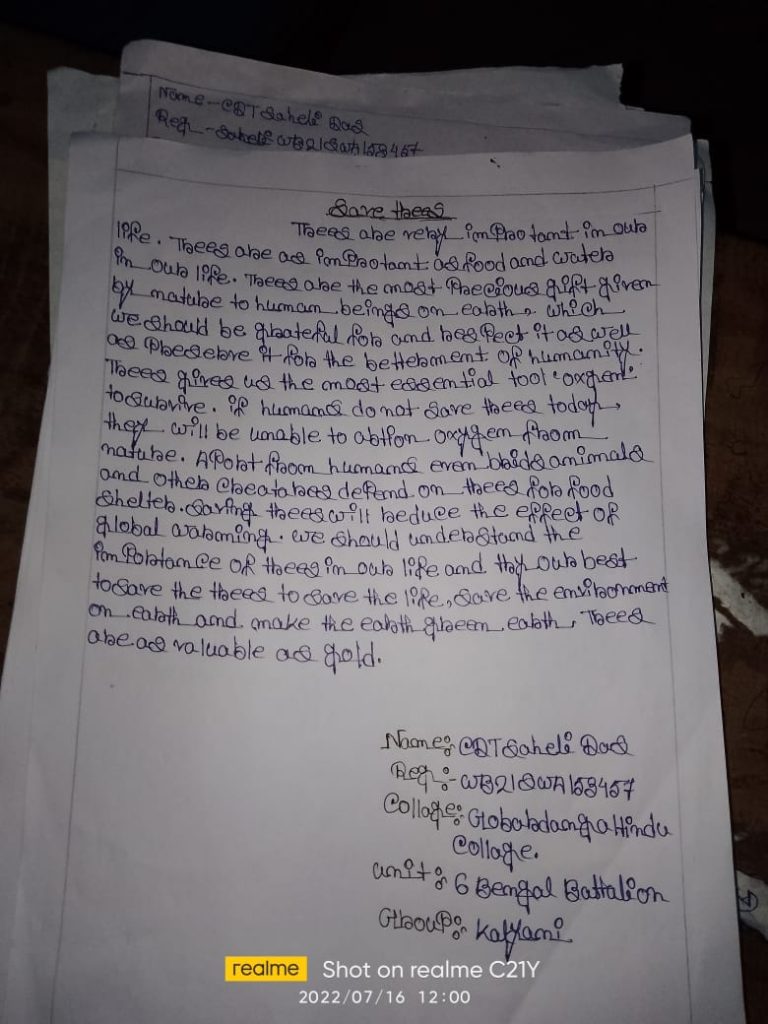 Name - CDT Saheli Das
Reg - Saheli WB21SWA153457
Save trees
Trees are very improtant in our
life. Trees are as improtant as food and water
in our life. Trees are the most precious gift given
by nature to human beings on earth, which
we should be grateful for and respect it as well
as preserve it for the betterment of humanity.
Trees gives us the most essential tool 'oxgen'
to survive. if humans do not save trees today,
they will be unable to abtion oxygen from
nature. Aport from humans even brids animals
and other creatares defend on trees for food
Shelter. Saving trees will reduce the effect of
global warming. we should understand the
importance of trees in our life and try our best
to save the trees to save the life, save the environment
on earth and make the earth green earth, Trees
are as valuable as gold.
Name:- CDT Saheli Das
Reg:- WB21SWA153457
Collage: Gobardanga Hindu
Collage.
unit: 6 Bengal Battalion
Group: Kalyani
realme Shot on realme C21Y
2022/07/16 12:00